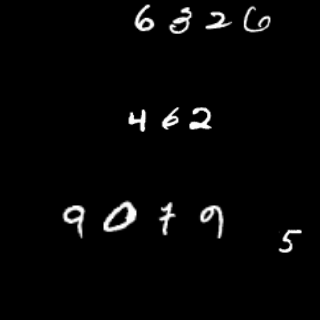 6326
462
9079
5